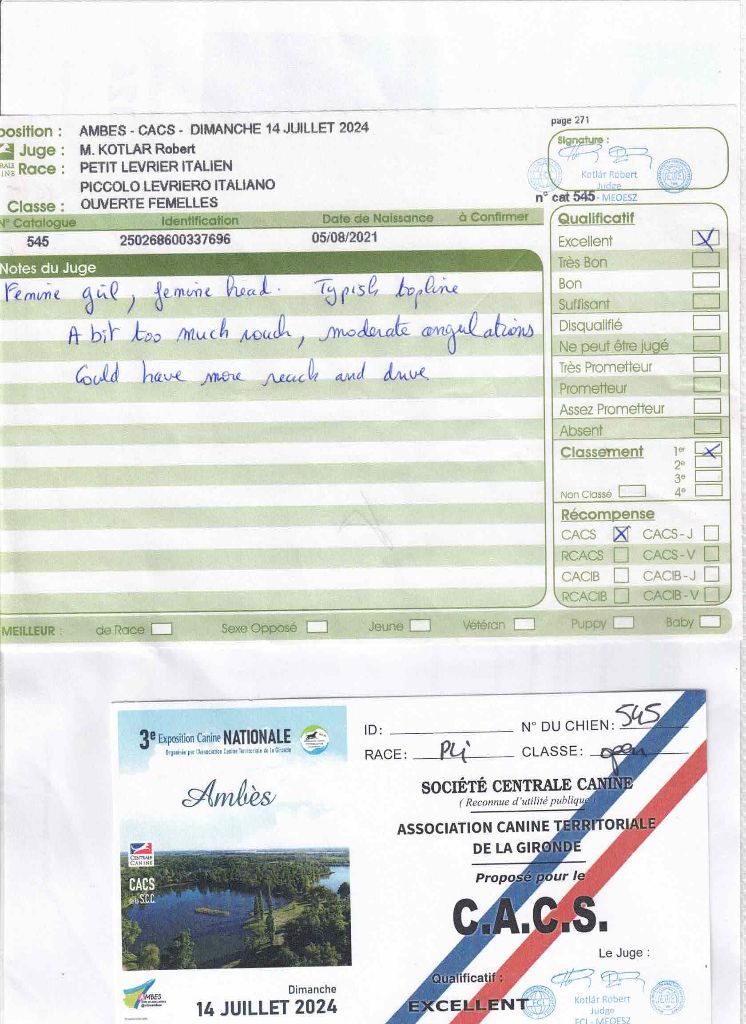 page 271
position : AMBES - CACS - DIMANCHE 14 JUILLET 2024
Juge : M. KOTLAR Robert
Race : PETIT LEVRIER ITALIEN
PICCOLO LEVRIERO ITALIANO
Classe : OUVERTE FEMELLES
Signature :
Kotlár Róbert
Judge
- MEOESZ
n° cat 545
N° Catalogue Identification Date de Naissance à Confirmer
545 250268600337696 05/08/2021
Notes du Juge
Femine girl, femine head. Typish topline
A bit too much , moderate angulations
Could have more reach and drive
Qualificatif
Excellent X
Très Bon
Bon
Suffisant
Disqualifié
Ne peut être jugé
Très Prometteur
Prometteur
Assez Prometteur
Absent
Classement 1er X
2e
3e
Non Classé 4e
Récompense
CACS X CACS - J
RCACS CACS - V
CACIB CACIB - J
RCACIB CACIB - V
MEILLEUR : de Race Sexe Opposé Jeune Vétéran Puppy Baby
3e Exposition Canine NATIONALE
Organisée par l'Association Canine Territoriale de la Gironde
Ambès
CENTRALE
CANINE
CACS
de la S.C.C.
AMBES
Dimanche
14 JUILLET 2024
ID: N° DU CHIEN: 545
RACE: PLI CLASSE: open
SOCIÉTÉ CENTRALE CANINE
( Reconnue d'utilité publique )
ASSOCIATION CANINE TERRITORIALE
DE LA GIRONDE
Proposé pour le
C.A.C.S.
Le Juge :
Qualificatif :
EXCELLENT
FCI
Kotlár Róbert
Judge
FCI - MEOESZ